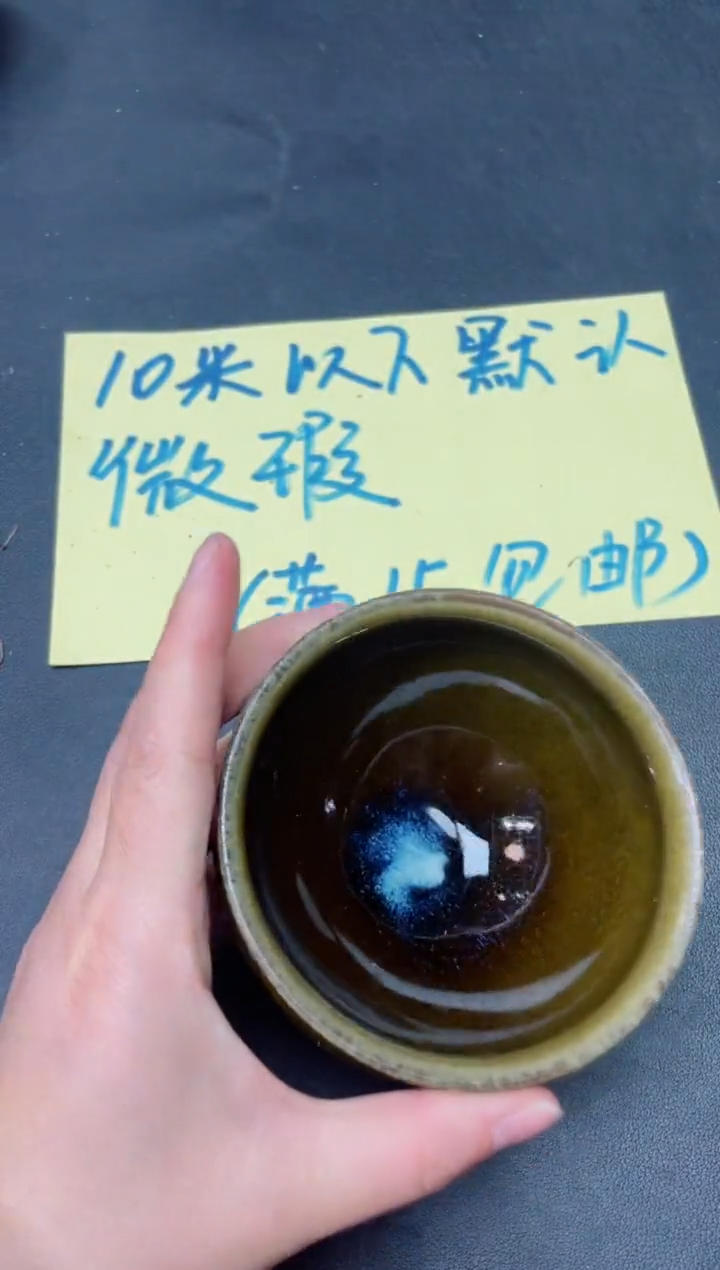 10米以下默认
微瑕
(满15包邮)